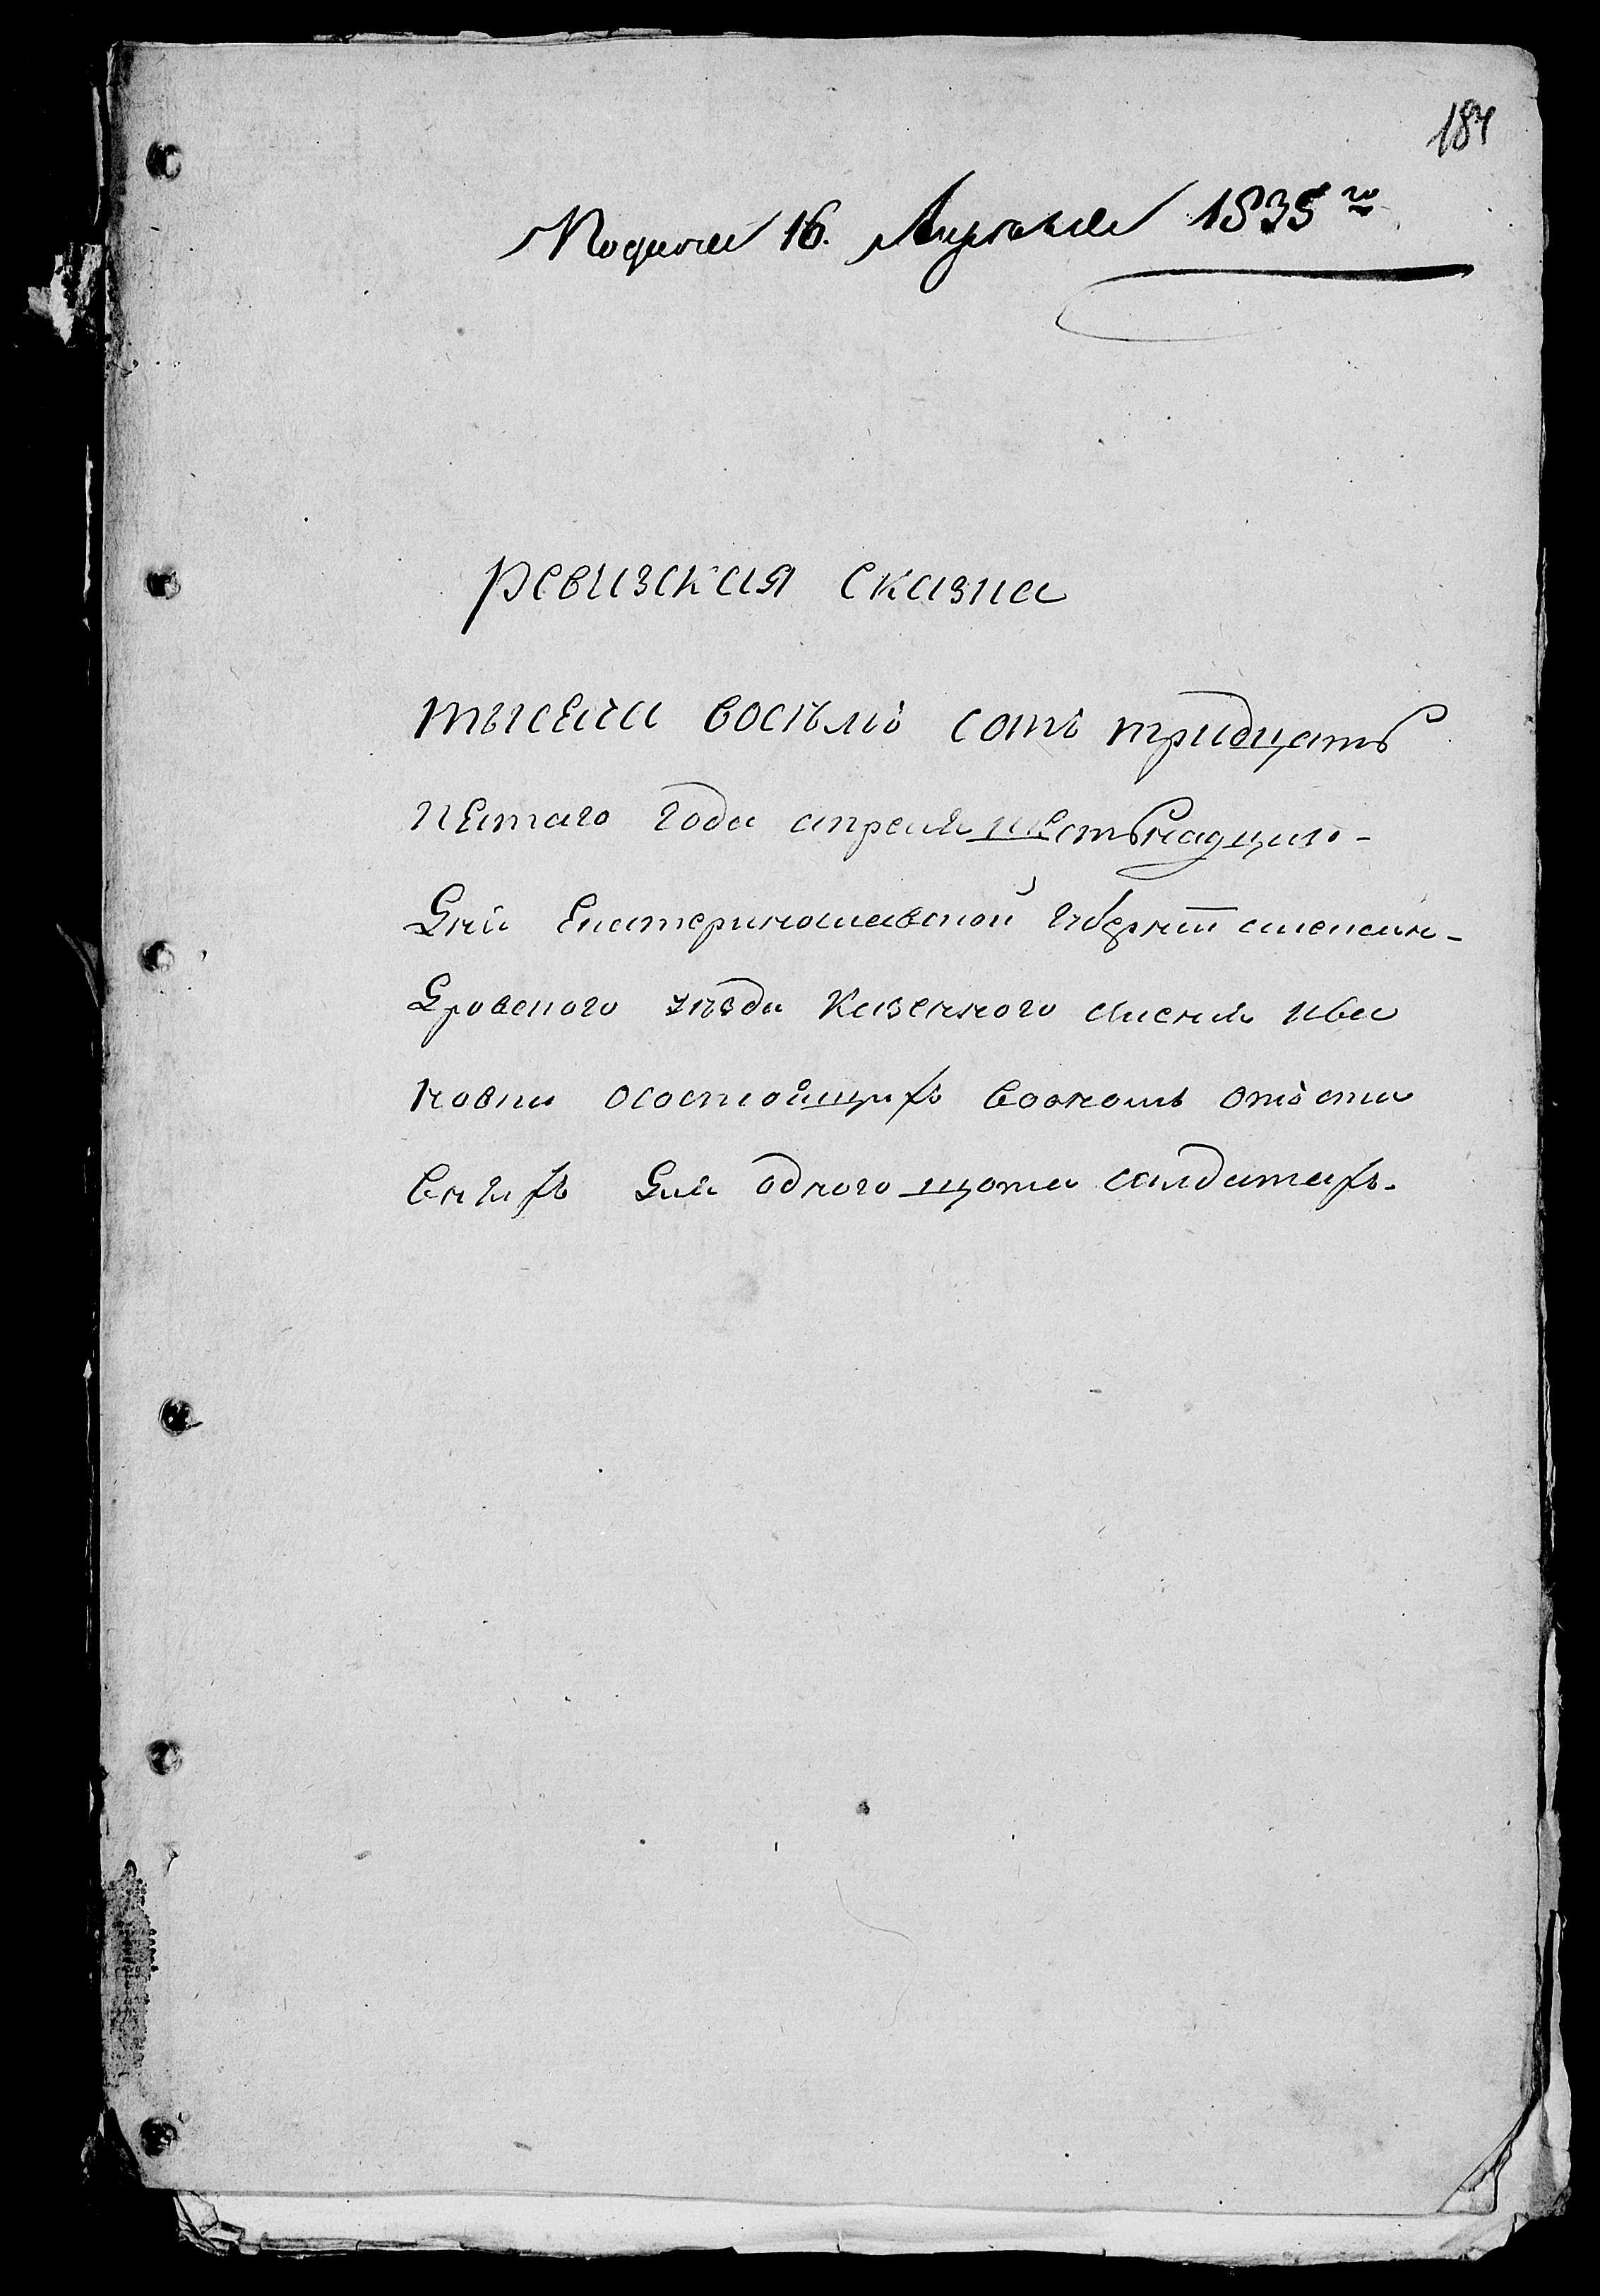 184
Подана 16. Апреля 1835го
ревизская сказка
тысеча восъмъ сотъ тридцать
петаго года апреля шестьнадцато-
Дня Екатеринославской губернии александ-
Дровского уезда Казенного селения Ива
новки осостоящихъ воономъ отъста
вныхъ Для одного щота салдатахъ.